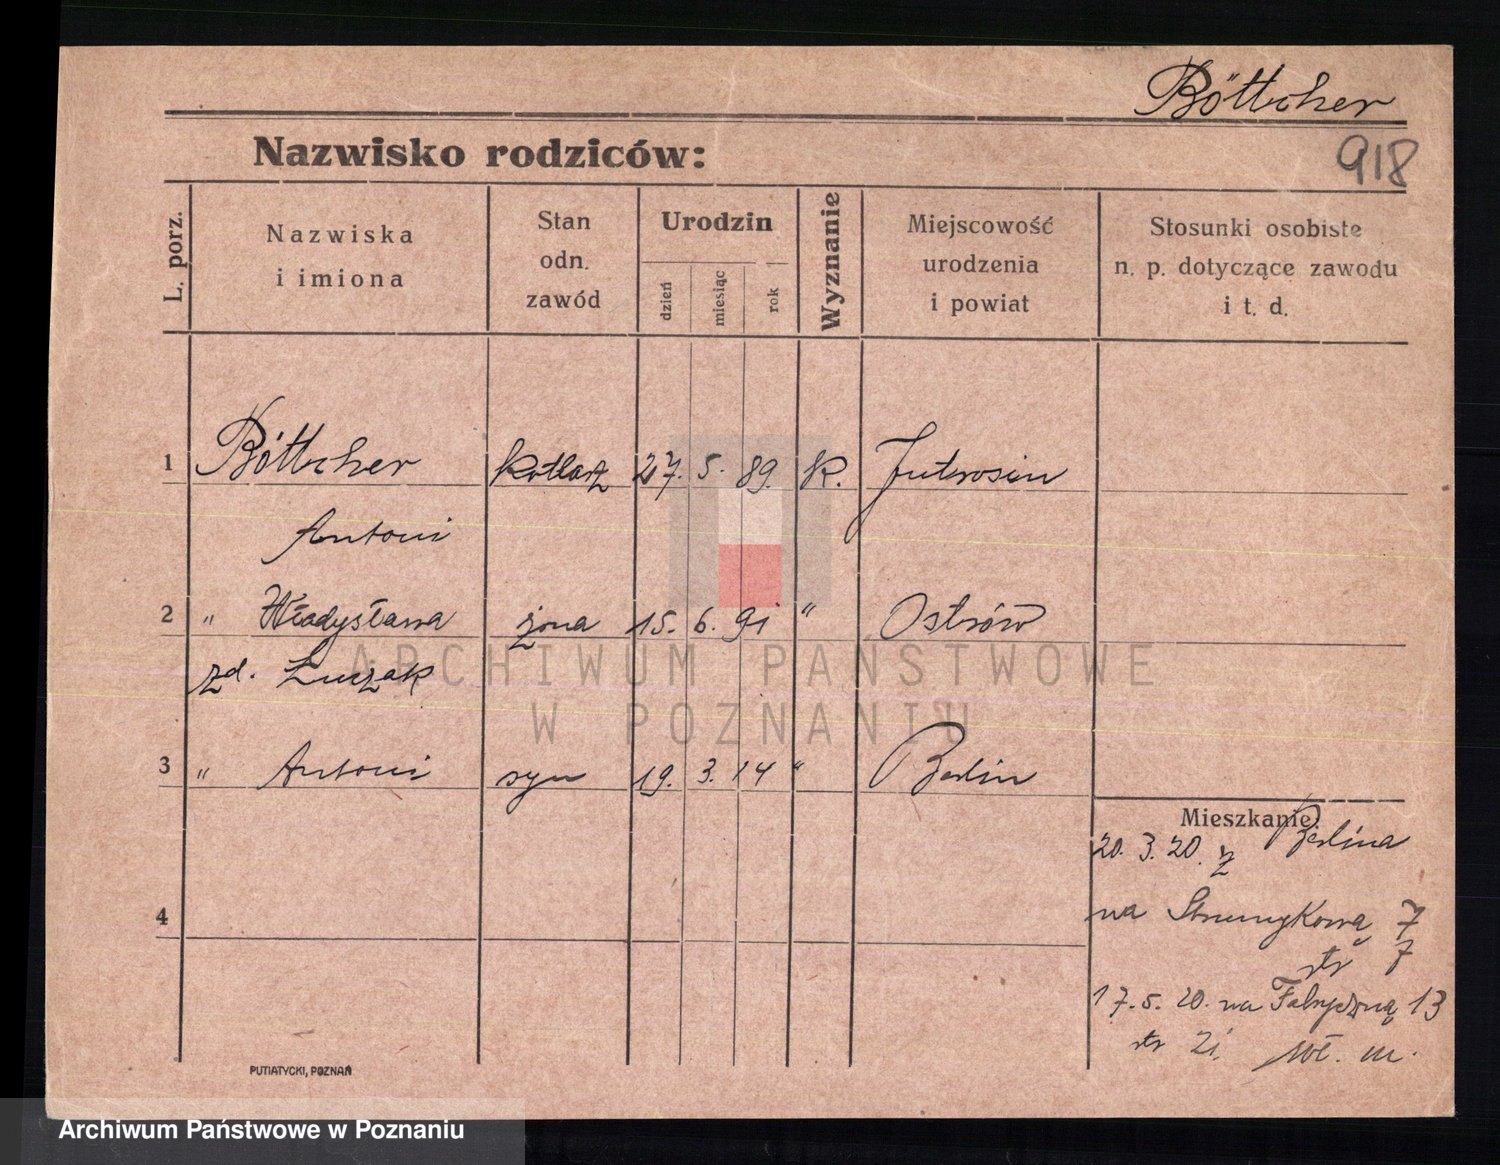 Böttcher
918
Nazwisko rodziców:
L. porz.
Nazwiska
i imiona
Stan
odn.
zawód
Urodzin
dzień
miesiąc
rok
Wyznanie
Miejscowość
urodzenia
i powiat
Stosunki osobiste
n. p. dotyczące zawodu
i t. d.
1 Böttcher kotlarz 27. 5. 89 K. Jutrosin
Antoni
2 " Władysława żona 15. 6. 91 " Ostrów
zd. Łuczak
3 " Antoni syn 19. 3. 14 " Berlin
4
Mieszkanie
20. 3. 20. z Berlina
na Strumykową 7
str 7
17. 5. 20. na Fabryczną 13
str 21. wł. m.
PUTIATYCKI, POZNAŃ
ARCHIWUM PAŃSTWOWE
W POZNANIU
Archiwum Państwowe w Poznaniu